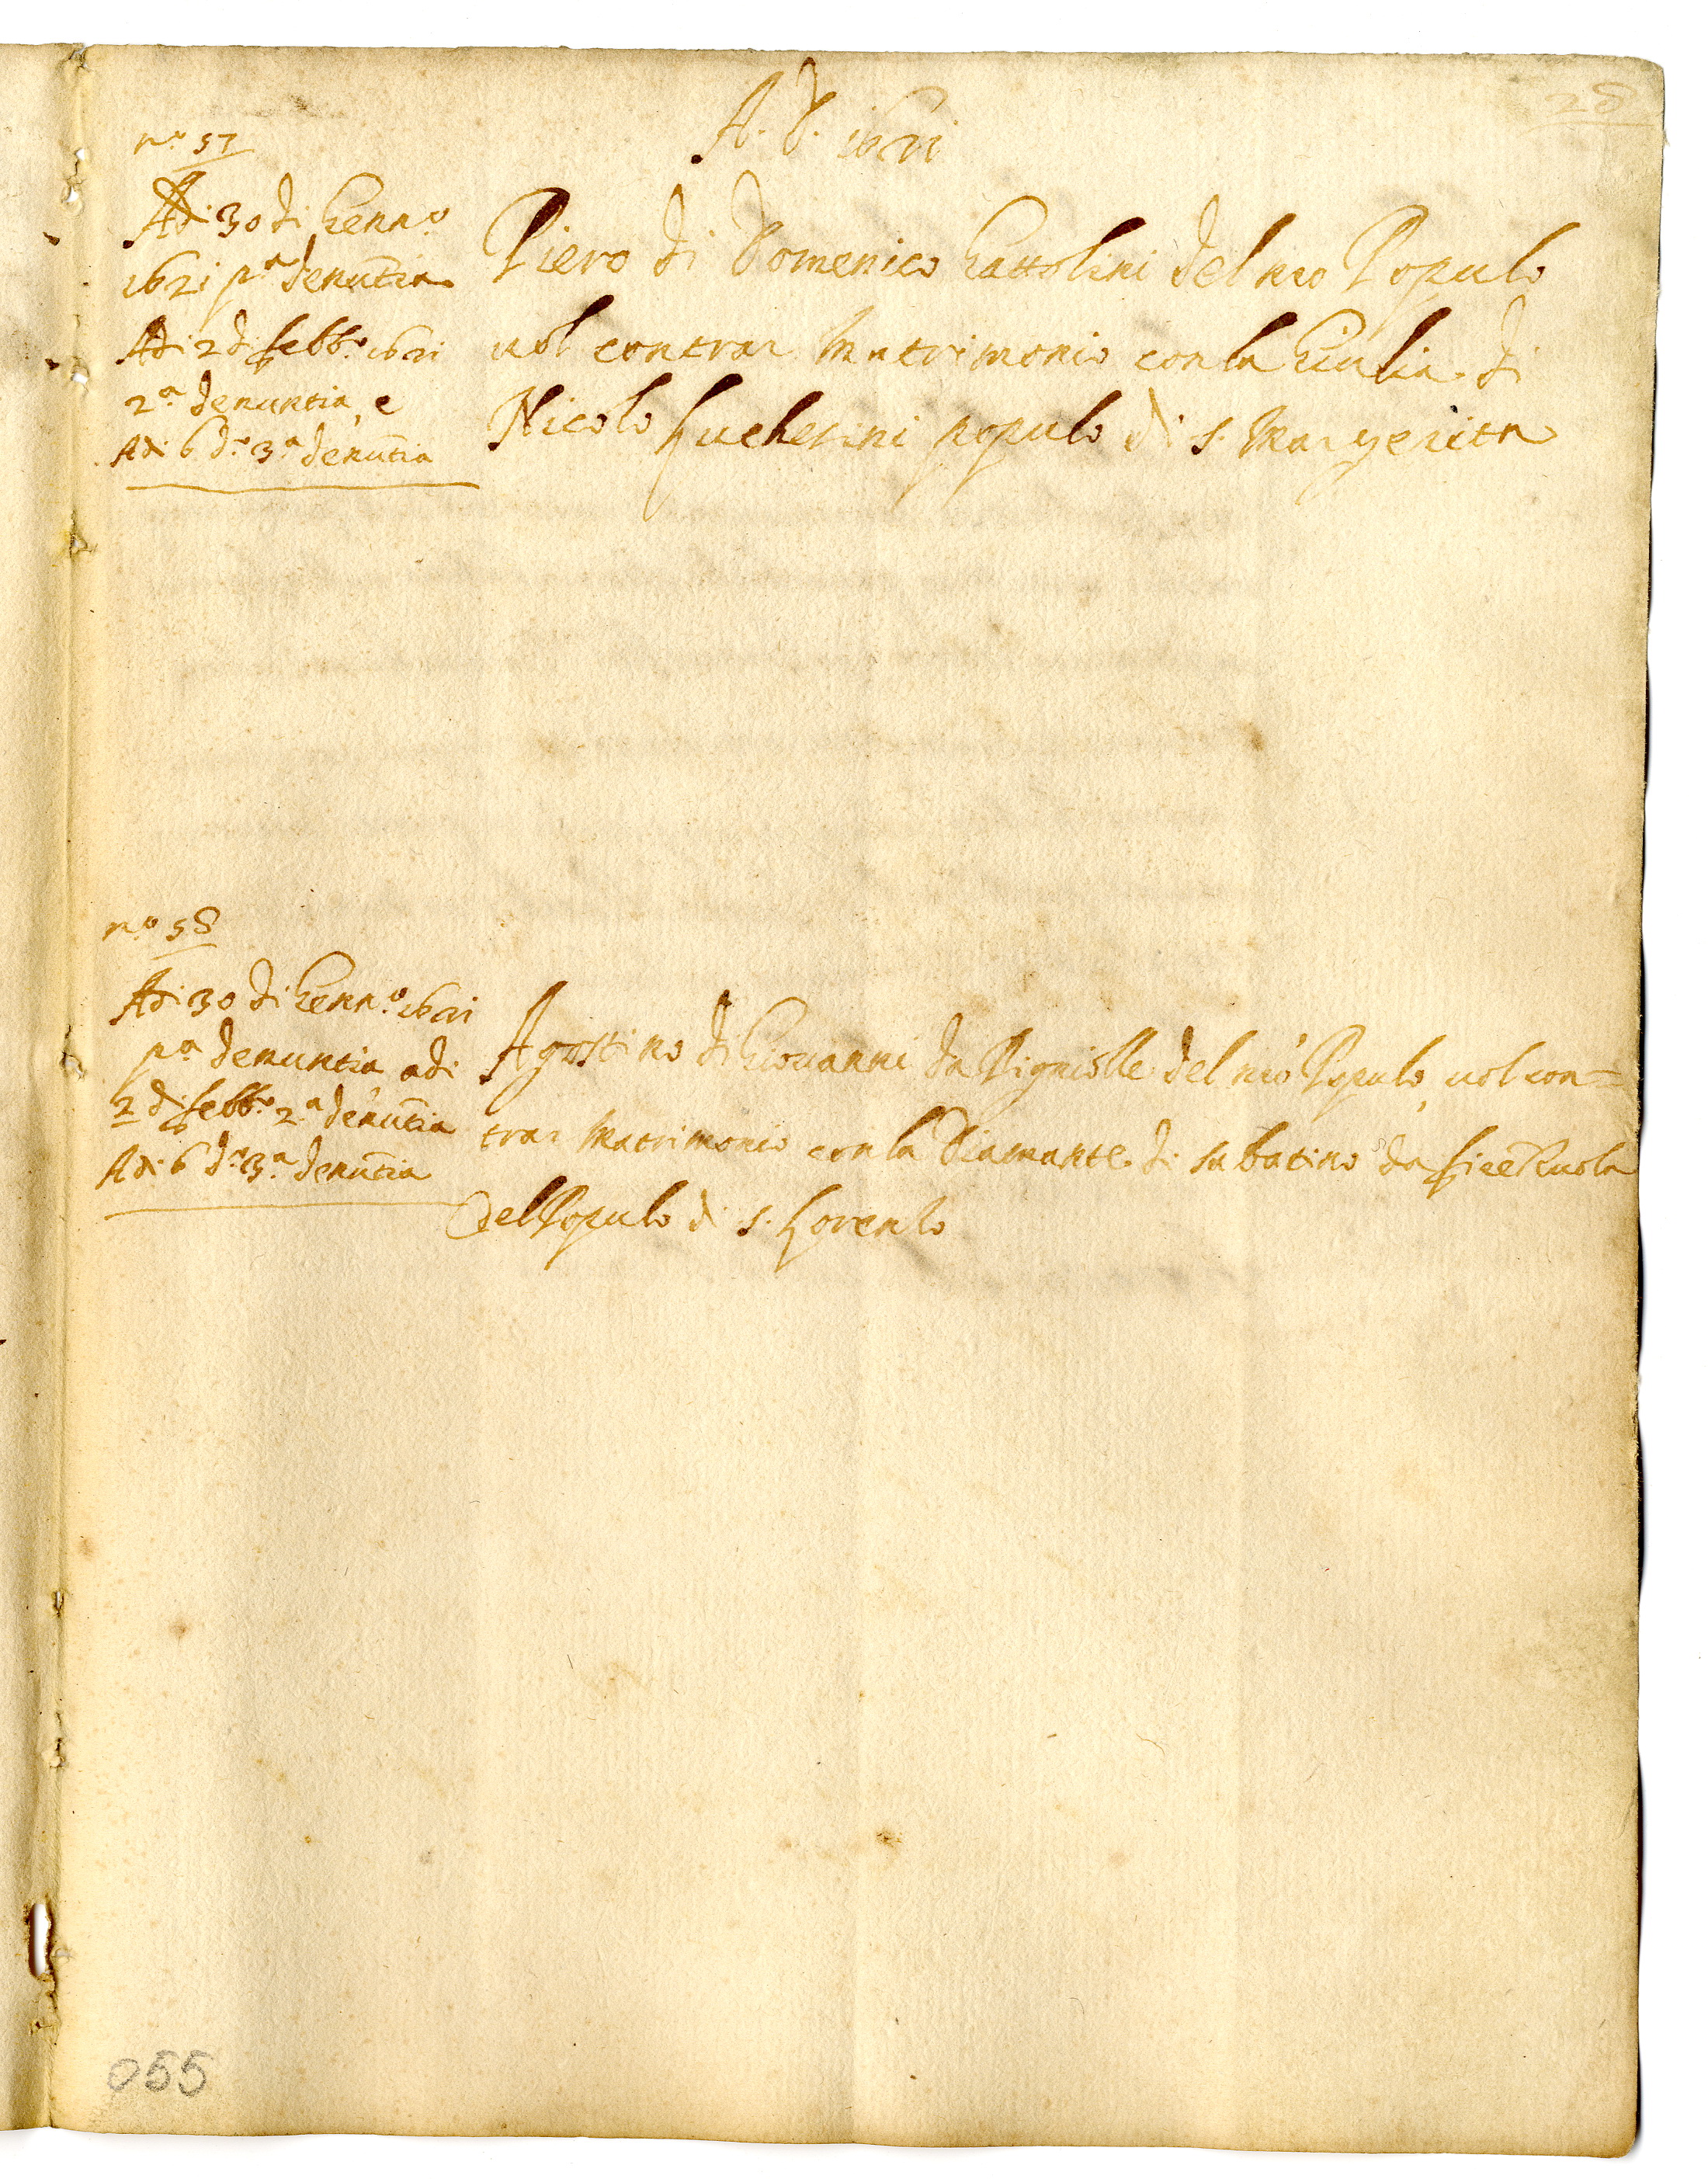 28
A. D. 1621
nº 57
Adi 30 di Genn.º
1621 pª denũtia
Adi 2 di febb.º 1621
2ª denuntia, e
Adi 6 dº 3ª denũtia
Piero di Domenico Gattolini del nro Populo
uol contrar Matrimonio con la Giulia di
Nicolo Lucherini populo di S. Margerita
nº 58
Adi 30 di Genn.º 1621
pª denuntia adi
2 di febb.º 2ª denũtia
Adi 6 dº 3ª denũtia
Agostino di Giouanni da Pigniolle del nro Populo, uol con=
trar Matrimonio con la Diamante di Sabatino da
del Populo di S. Lorenzo
055